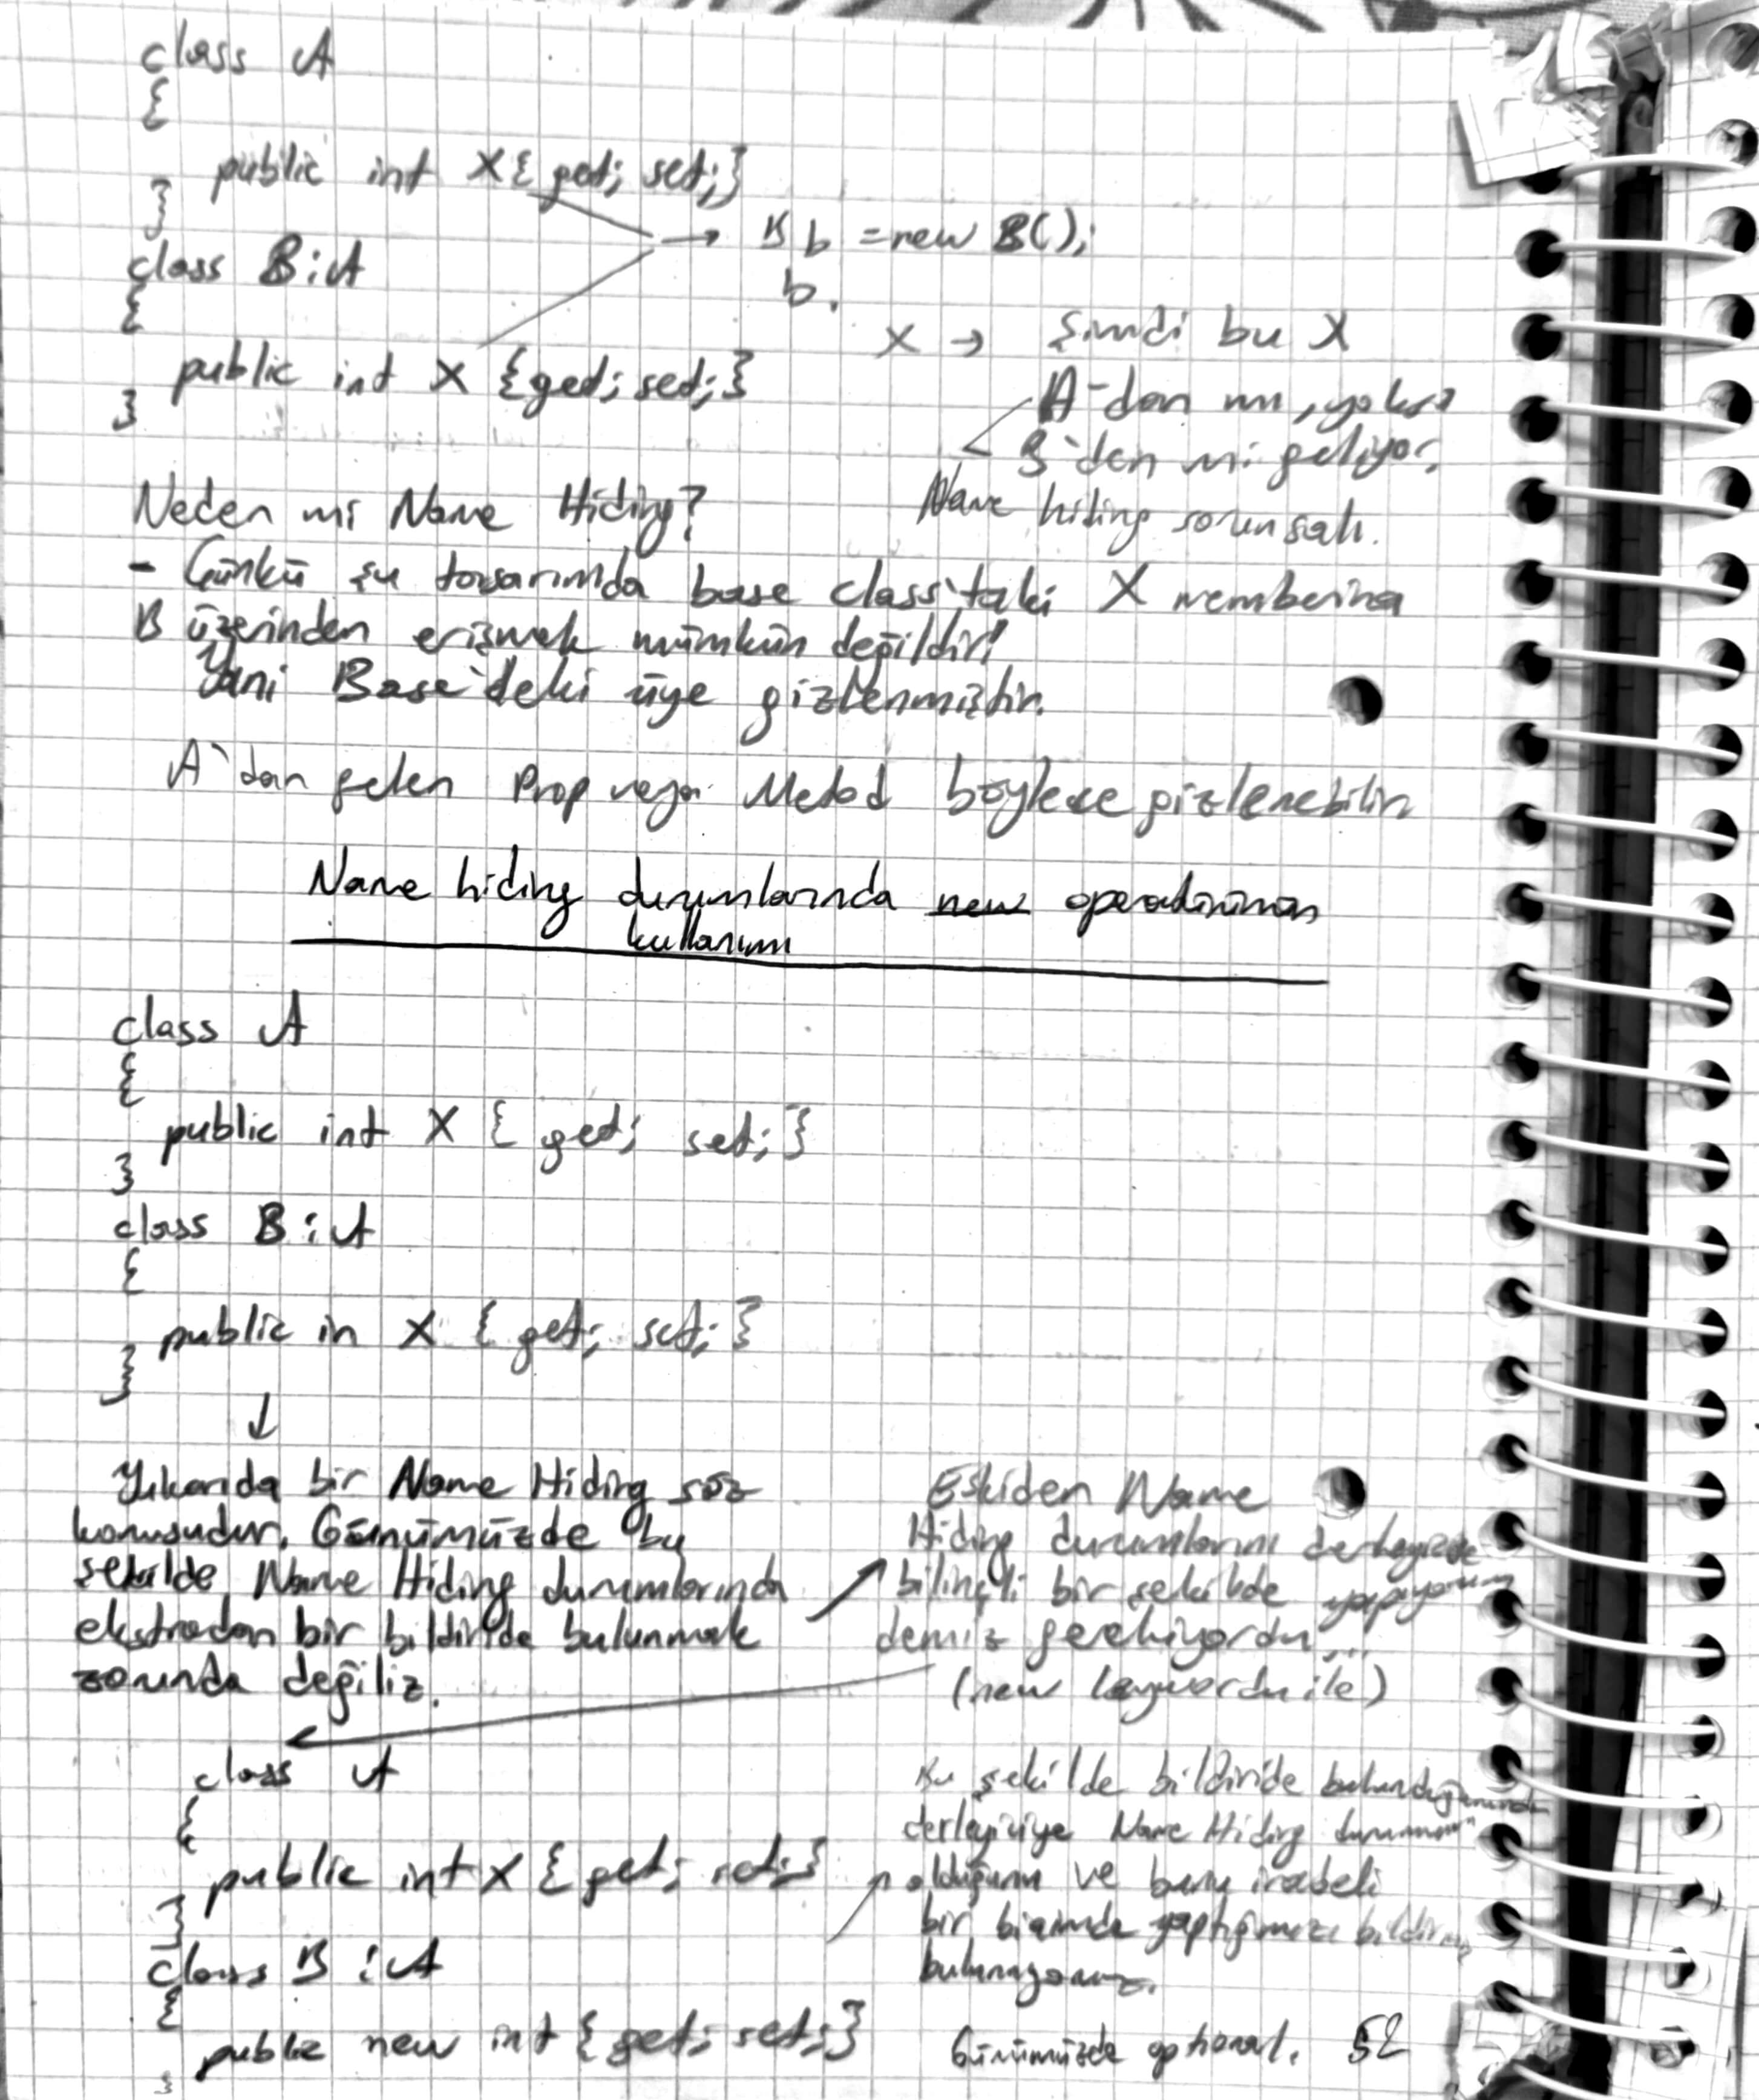 class A
{
public int X{ get; set;}
}
→ B b = new B();
b.
class B:A
{
X → Şimdi bu X
public int X {get; set;}
A'dan mı, yoksa
}
B'den mi geliyor.
Name hiding sorunsalı.
Neden mi Name Hiding?
- Çünkü şu tasarımda base class'taki X memberına
B üzerinden erişmek mümkün değildir!
Yani Base'deki üye gizlenmiştir.
A'dan gelen Prop veya Metod böylece gizlenebilir
Name hiding durumlarında new operatörünün
kullanımı
class A
{
public int X { get; set;}
}
class B:A
{
public in X { get; set;}
}
↓
Yukarıda bir Name Hiding söz
konusudur. Günümüzde bu
şekilde Name Hiding durumlarında
ekstradan bir bildiride bulunmak
zorunda değiliz.
Eskiden Name
Hiding durumlarını derleyiciye
bilinçli bir şekilde yapıyorum
demiz gerekiyordu...
(new keywordu ile)
class A
{
public int X { get; set;}
}
class B :A
{
public new int { get; set;}
}
Bu şekilde bildiride bulunduğumuzda
derleyiciye Name Hiding
olduğunu ve bunu iradeli
bir biçimde yaptığımızı
bulunuyoruz.
Günümüzde optional. 52